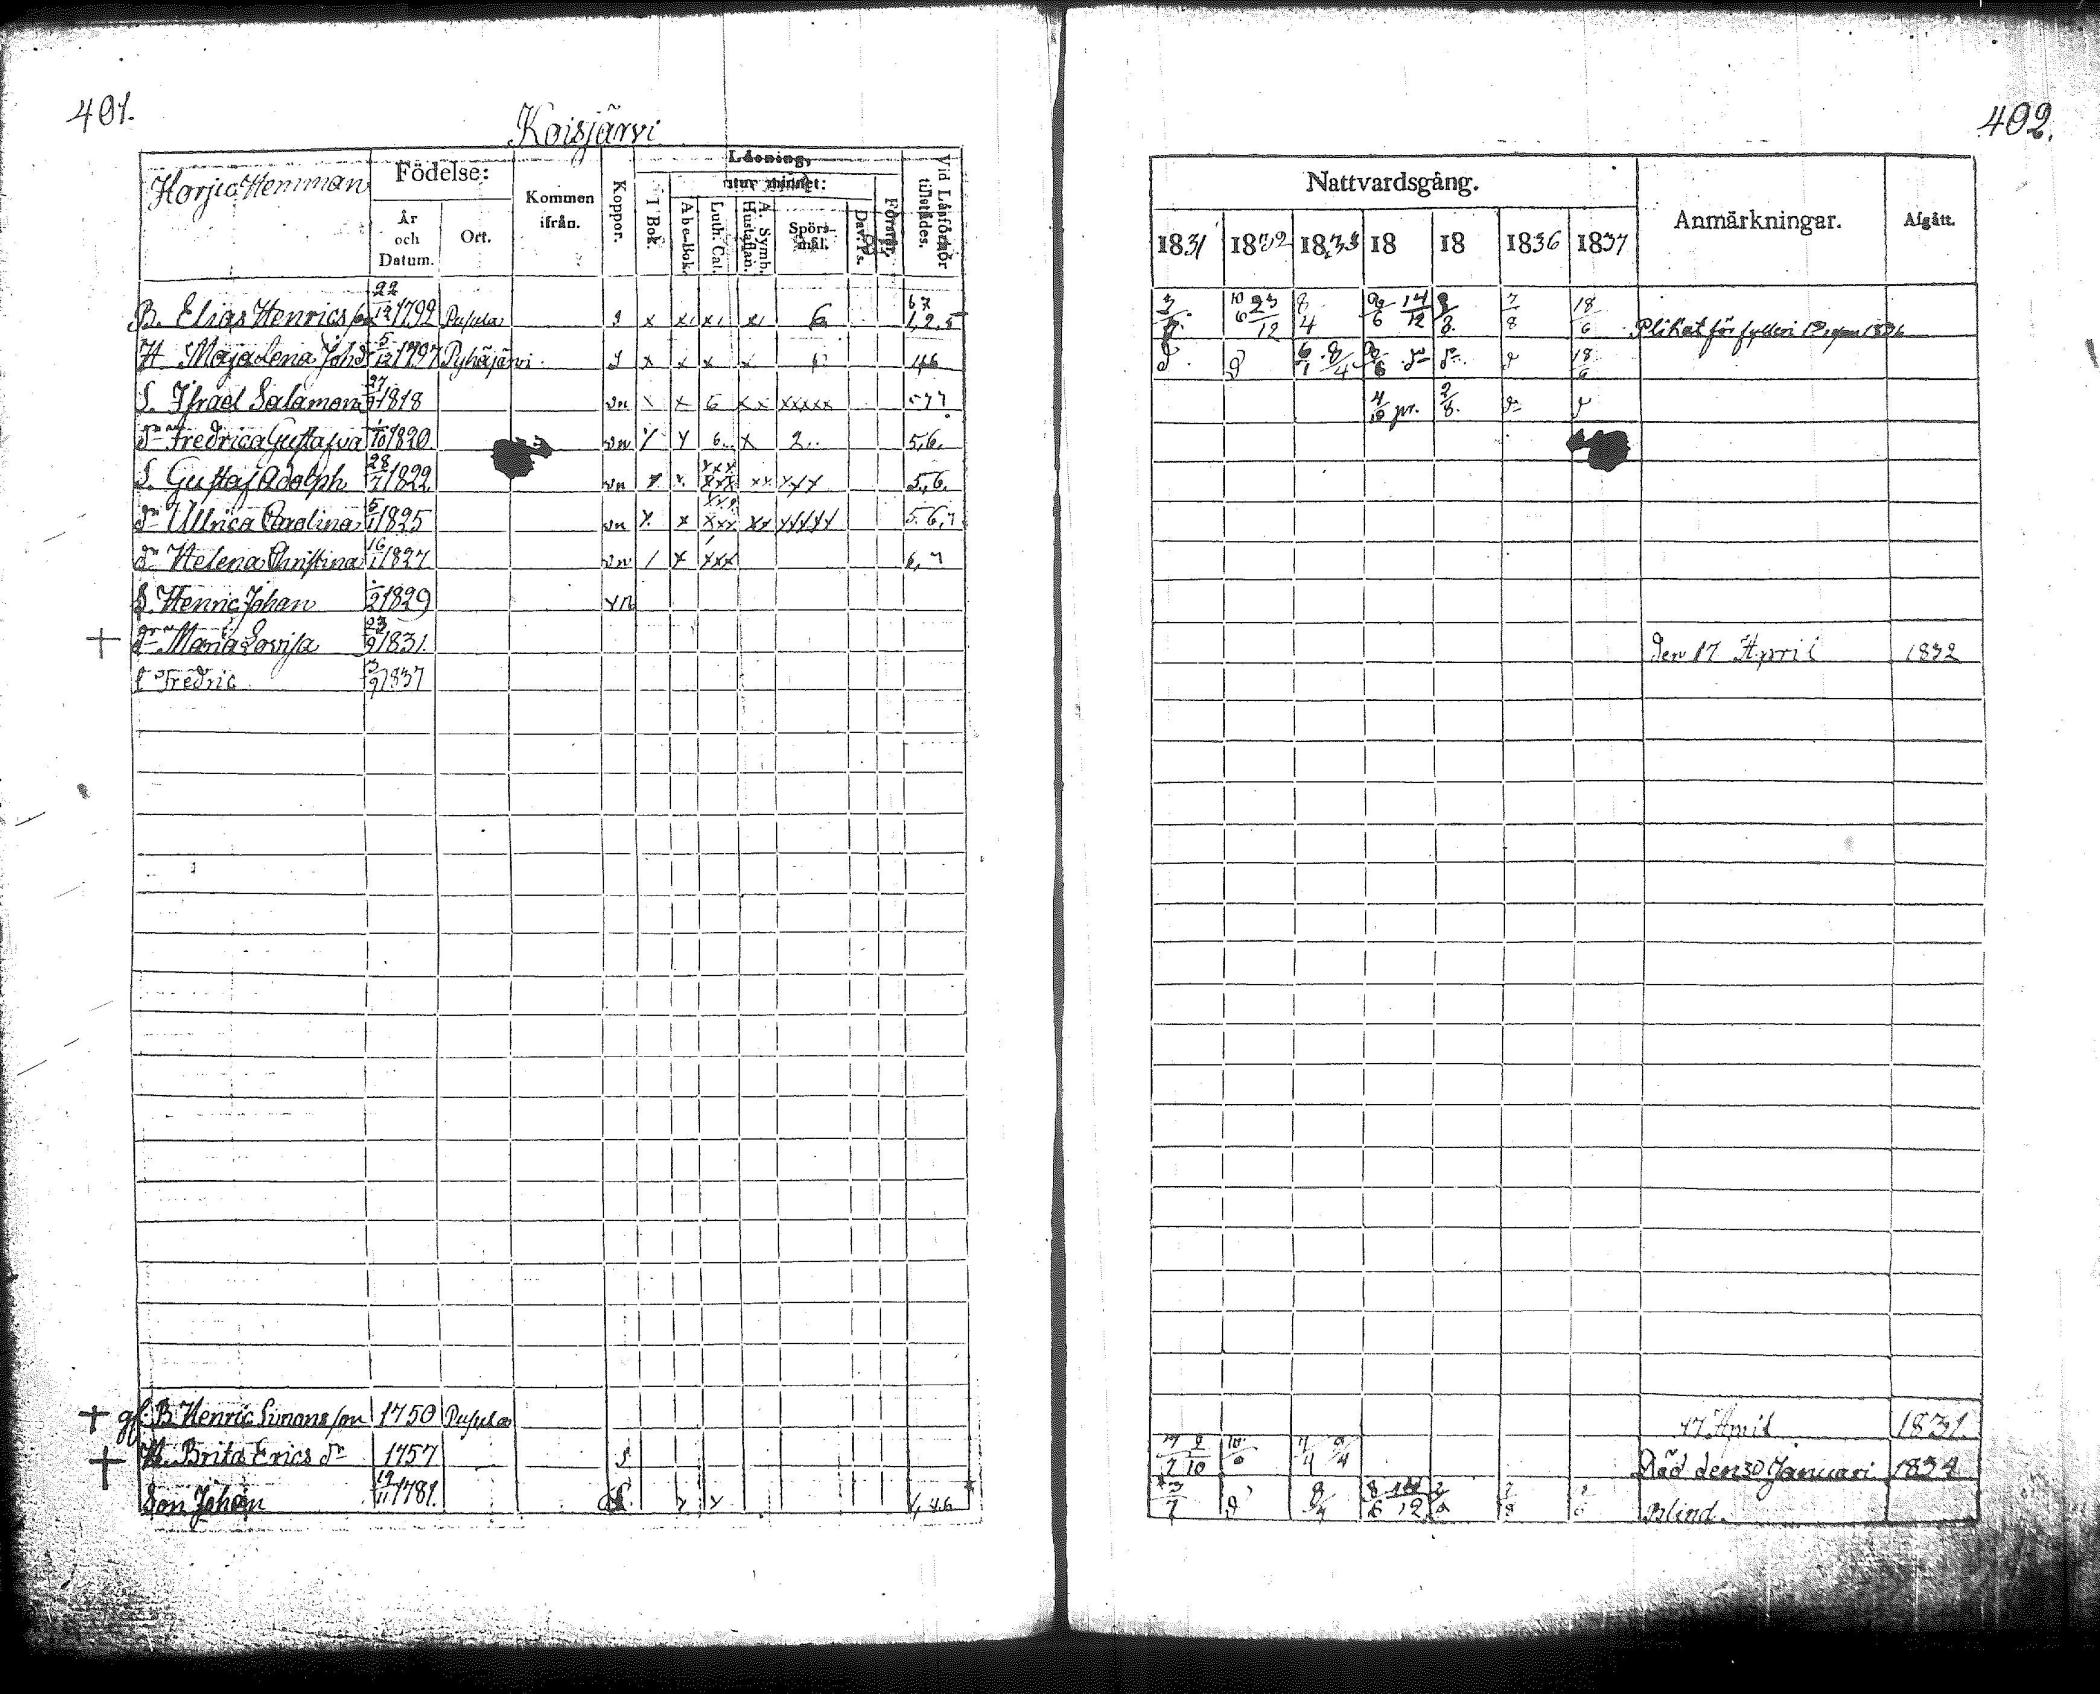 401.
Koisjärvi
Harju Hemman
Födelse:
År och Datum.
Ort.
Kommen ifrån.
Koppor.
Läsning,
utur minnet:
I Bok.
Abc-Bok.
Luth. Cat.
A. Symb. Hustaflan.
Spörsmål.
Dav. Ps.
Förstår.
Vid Läsförhör tillstädes.
B. Elias Henricsson 22/12 1792 Pusula x x x x 6
H Maja Lena Johsdr 5/12 1797 Pyhäjärvi x x x x
S. Israel Salamon 27 1818 vn x x 6 x x xxxxx
dr Fredrica Gustafva /10 1820 vn x 6 x 2 5,6.
S. Gustaf Adolph 28/7 1822 vn x x xxx xxx xx xxx 5,6.
dr Ullrica Carolina 5/1 1825 vn x x xxx xxx xx xxxxx 5.6,7
dr Helena Christina 16/1 1827 vn x xxx 6,7
S. Henric Johan /2 1829 vn
+ dr Maria Lovisa 23/9 1831.
s Fredric 3/9 1837
+ gf. B. Henric Simonsson 1750 Pusula
+ H. Brita Erics dr 1757
Son Johan 19/11 1781
402.
Nattvardsgång.
Anmärkningar.
Afgått.
1831 1832 1833 18 18 1836 1837
3/7 10/6 23/12 8/4 14/12 7/8 18/6 Pliktat för fylleri
18/6
4/10 pr. 2/8.
den 17 April 1832
17 April 1831.
Död den 30 Januari 1834
Blind.